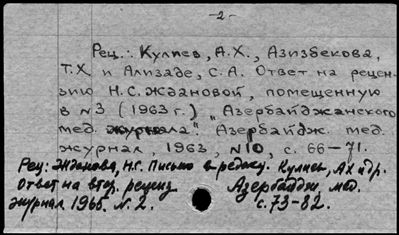 -2-
Рец.: Кулиев, А.Х., Азизбекова,
Т.Х и Ализаде, С.А. Ответ на рецен-
зию Н.С. Ждановой, помещенную
в №3 (1963 г.) „Азербайджанского
мед. журнала". Азербайдж. мед.
журнал, 1963, №10, с. 66-71.
Рец: Жданова, Н.С. Письмо в редакц. Кулиев, А.Х и др.
Ответ на втор. реценз Азербайдж. мед.
журнал 1965. N. 2. с. 73-82.